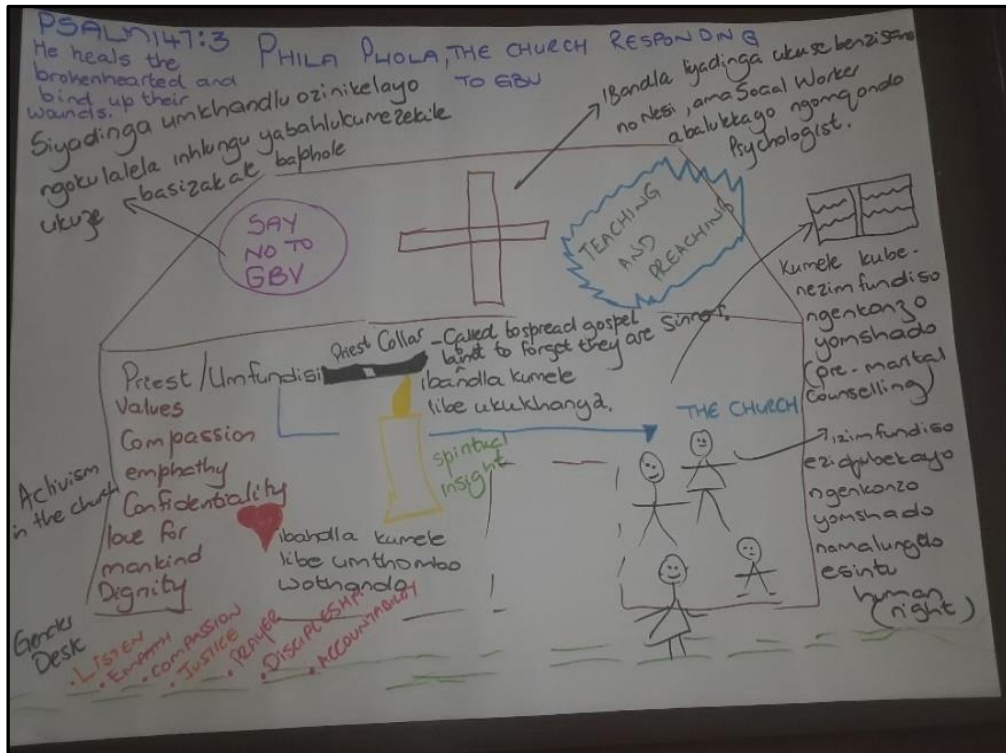 PSALM 147:3
He heals the
brokenhearted and
bind up their
wounds.
PHILA PHOLA, THE CHURCH RESPONDING
TO GBV
Siyadinga umkhandlu ozinikelayo
ngokulalela inhlungu yabahlukumezekile
ukuze basizakale baphole
IBandla liyadinga ukusebenzisana
no Nesi, ama Social Worker
abalukkago ngomqondo
Psychologist.
SAY
NO TO
GBV
TEACHING
AND
PREACHING
kumele kube-
nezimfundiso
ngenkonzo
yomshado
(pre-marital
counselling)
Priest Collar
- Called to spread gospel
not to forget they are Sinners.
Priest / Umfundisi
Values
Compassion
emphathy
Confidentiality
love for
mankind
Dignity
ibandla kumele
libe ukukhanya.
THE CHURCH
spiritual
insight
izimfundiso
eziqubekayo
ngenkonzo
yomshado
namalungelo
esintu
human
(right)
Activism
in the church
ibandla kumele
libe umthombo
wothando
Desk
• LISTEN
• EMPATH
• COMPASSION
• JUSTICE
• PRAYER
• DISCIPLESHIP
• ACCOUNTABILITY